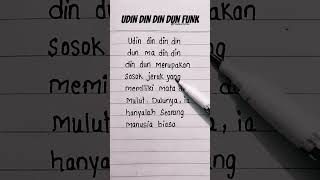 UDIN DIN DIN DUN FUNK
Udin din din din
dun ma din din
din dun merupakan
sosok jeruk yang
memiliki mata d
mulut. Dulunya, ia
hanyalah seorang
manusia biasa